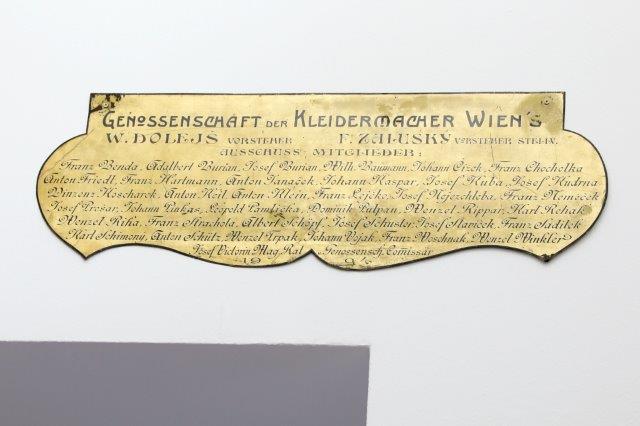 GENOSSENSCHAFT DER KLEIDERMACHER WIEN'S
W. DOLEJŠ VORSTEHER F. ZALUSKÝ VORSTEHER STELLV.
AUSSCHUSS-MITGLIEDER:
Franz Benda, Adalbert Burian, Josef Burian, Wilh. Baumann, Johann Čížek, Franz Chocholka
Anton Friedl, Franz Hartmann, Anton Janaček, Johann Kaspar, Josef Kuba, Josef Kudrna
Vinzenz Koscharek, Anton Keil, Anton Klein, Franz Lejčko, Josef Nejezchleba, Franz Nemeček
Josef Johann Leopold Dominik Wenzel Rippar, Karl Rehak
Wenzel Řiha, Franz Strachota, Albert Schöpf, Josef Schuster, Josef Slaviček, Franz Sadilek
Karl Schimony, Anton Schütz, Wenzel Trpak, Johann Vojak, Franz Woschnak, Wenzel Winkler
Josef Victorin Mag. Rat Genossensch. Comissär
19